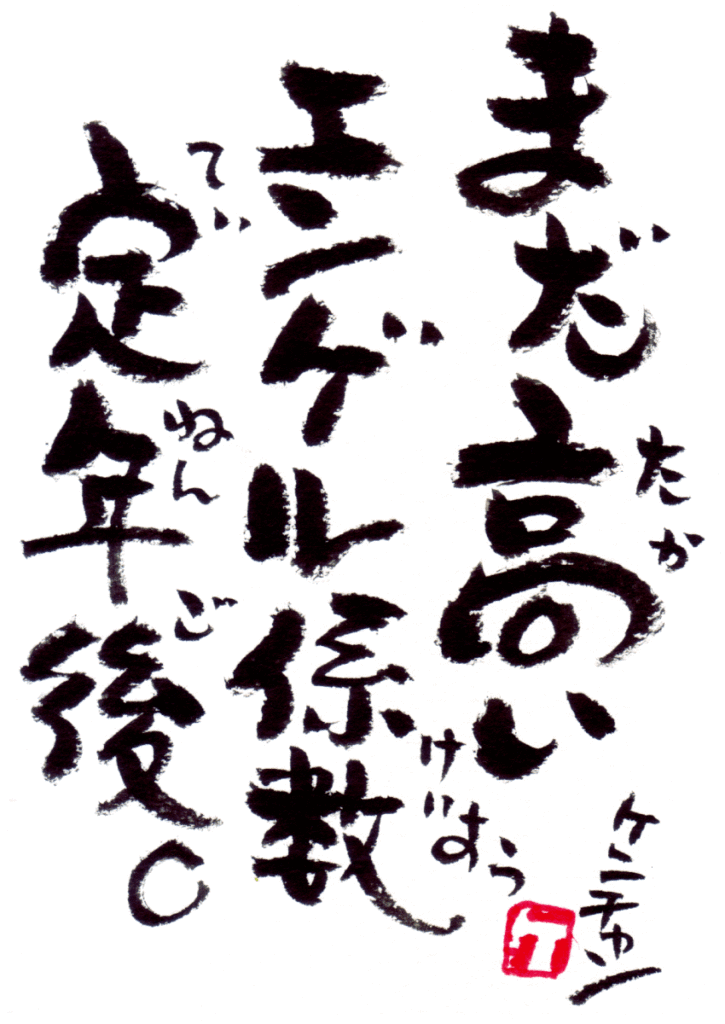 まだ高い
たか
エンゲル係数
けいすう
定年後。
ていねんご
ケンチャン
T